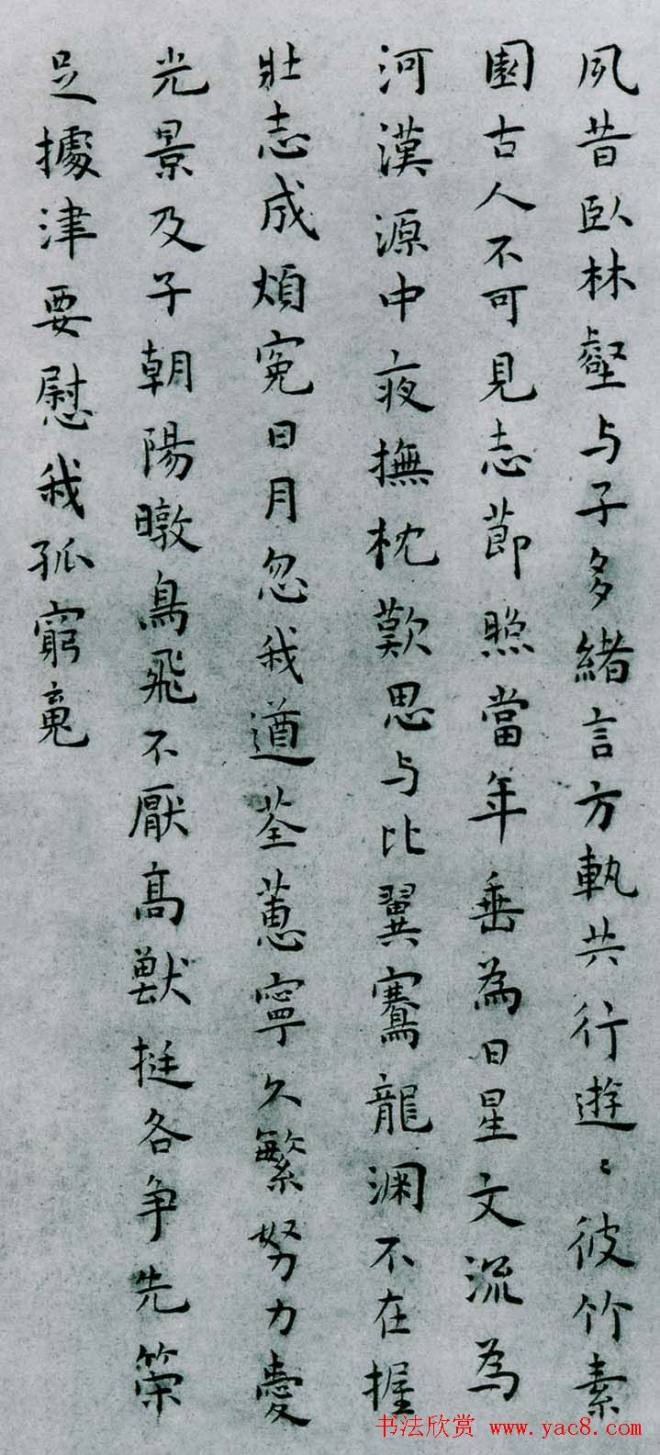 夙昔臥林壑与子多緒言方軌共行遊〻彼竹素
園古人不可見志莭照當年垂為日星文流為
河漢源中夜撫枕歎思与比翼騫龍淵不在握
壮志成煩寃日月忽我遒荃蕙寧久繁努力愛
光景及子朝陽暾鳥飛不厭高獸挺各争先策
足據津要慰我孤窮䰟
书法欣赏 www.yac8.com